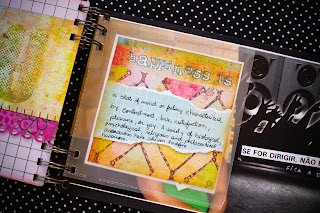 happiness is
a state of mind or feeling characterized
by contentment, love, satisfaction,
pleasure, or joy. A variety of biological,
psychological, religious and philosophical
approaches have striven to define
happiness
SE FOR DIRIGIR, NÃO